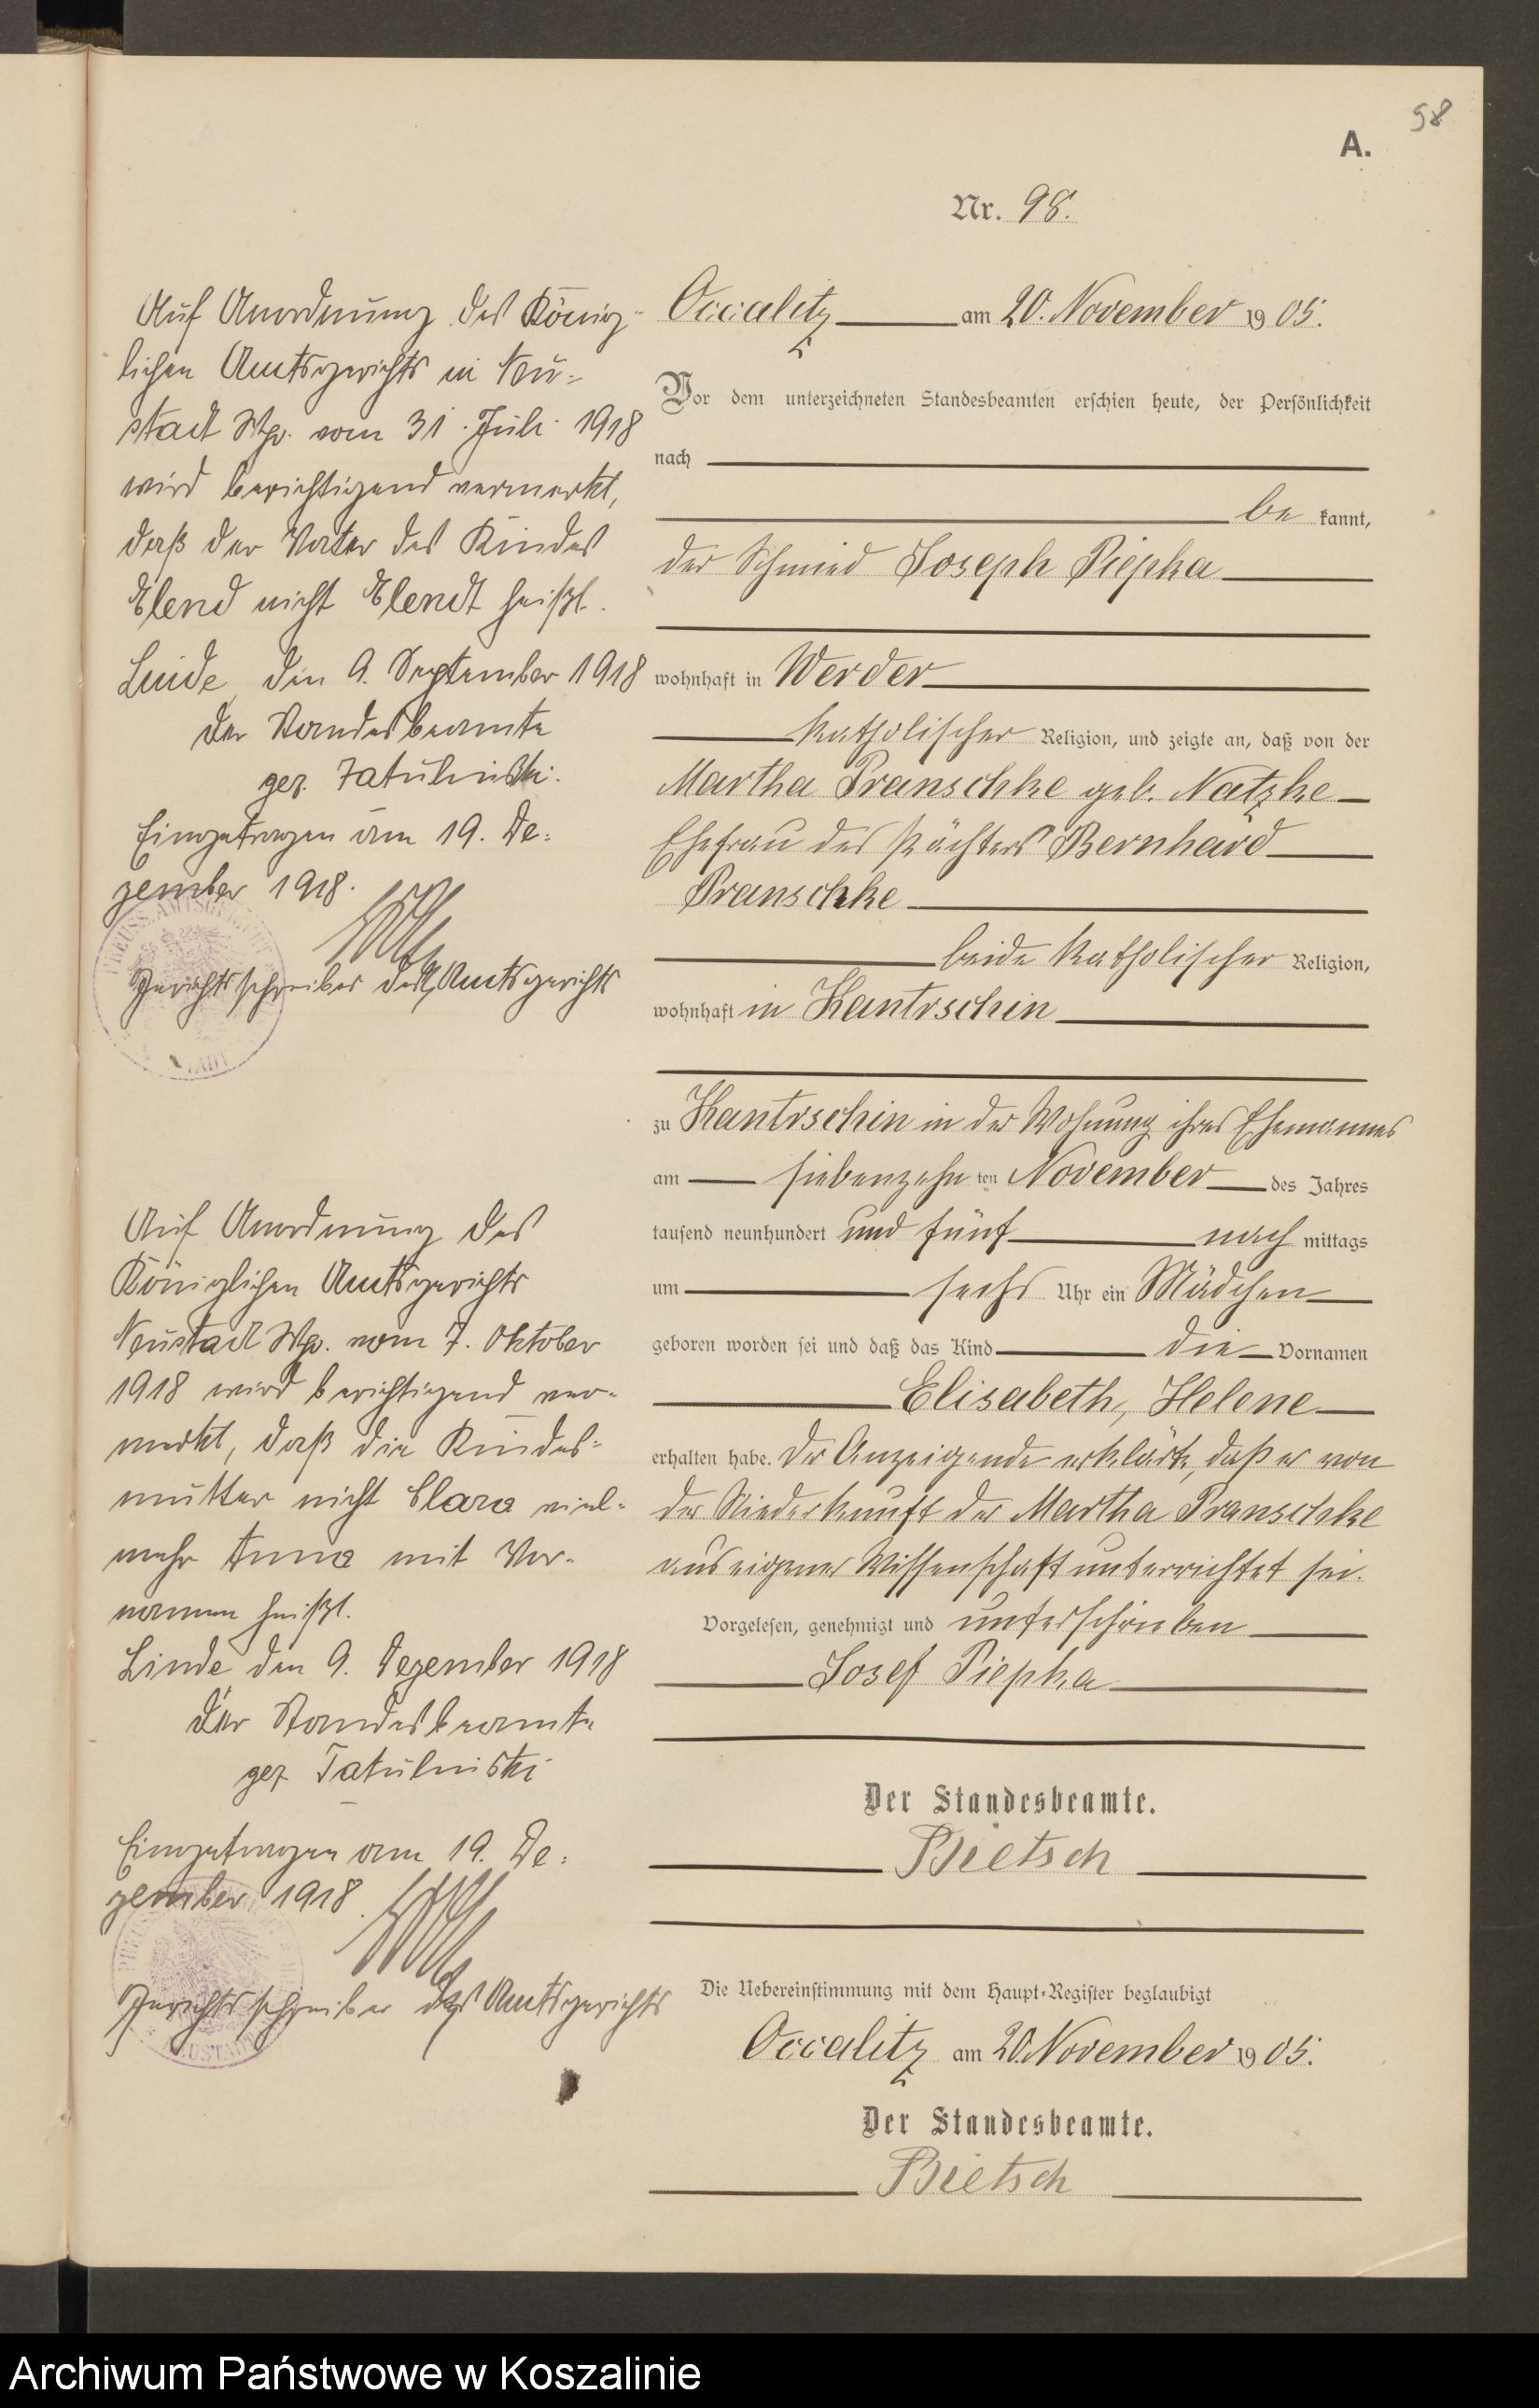 98
A.
Nr. 98.
Auf Anordnung des König-
lichen Amtsgerichts in Neu=
stadt Wp. vom 31. Juli 1918
wird berichtigend vermerkt,
daß der Vater des Kindes
Elend nicht Elendt heißt.
Linde, den 9. September 1918
Der Standesbeamte
gez. Tatulinski.
Eingetragen am 19. De=
zember 1918.
Gerichtsschreiber des Amtsgerichts
Auf Anordnung des
Königlichen Amtsgerichts
Neustadt Wp. vom 7. Oktober
1918 wird berichtigend ver=
merkt, daß die Kindes=
mutter nicht Clara viel=
mehr Anna mit Vor=
namen heißt.
Linde den 9. Dezember 1918
Der Standesbeamte
gez. Tatulinski
Eingetragen am 19. De=
zember 1918.
Gerichtsschreiber des Amtsgerichts
Occalitz am 20. November 1905.
Vor dem unterzeichneten Standesbeamten erschien heute, der Persönlichkeit
nach
be kannt,
der Schmied Joseph Piepka
wohnhaft in Werder
katholischer Religion, und zeigte an, daß von der
Martha Pranschke geb. Natzke
Ehefrau des Pächters Bernhard
Pranschke
beide katholischer Religion,
wohnhaft in Kantrschin
zu Kantrschin in der Wohnung ihres Ehemannes
am siebenzehn ten November des Jahres
tausend neunhundert und fünf nach mittags
um sechs Uhr ein Mädchen
geboren worden sei und daß das Kind die Vornamen
Elisabeth, Helene
erhalten habe. Der Anzeigende erklärte, daß er von
der Niederkunft der Martha Pranschke
aus eigener Wissenschaft unterrichtet sei.
Vorgelesen, genehmigt und unterschrieben
Josef Piepka
Der Standesbeamte.
Bietsch
Die Uebereinstimmung mit dem Haupt-Register beglaubigt
Occalitz am 20. November 1905.
Der Standesbeamte.
Bietsch
Archiwum Państwowe w Koszalinie